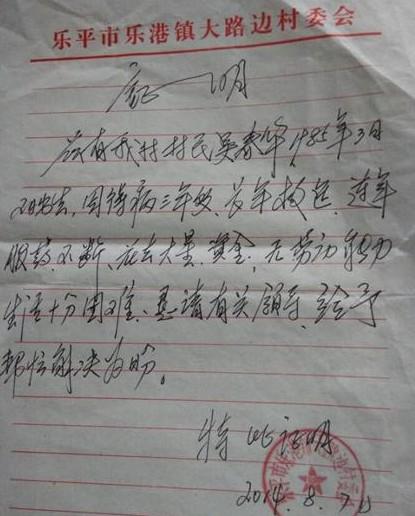 乐平市乐港镇大路边村委会
证明
兹有我村村民吴春华1985年3月
出生,因得病三年做,长年救延,连年
服药不断、花去大量、资金,无劳动能力
生活十分困难、恳请有关领导、给予
帮忙解决为盼。
特此证明
2014.8.7日